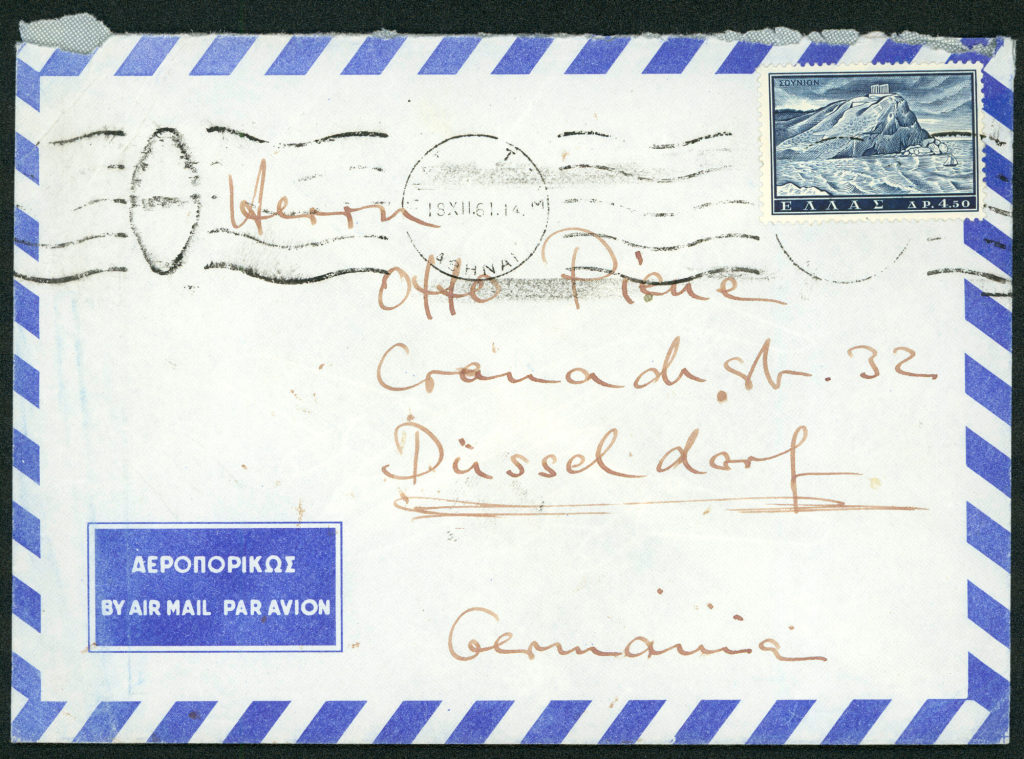 ΣΟΥΝΙΟΝ
ΕΛΛΑΣ ΔΡ. 4.50
Τ.
18XII.61.14.
ΑΘΗΝΑΙ
Herrn
Otto Piene
Cranachstr. 32
Düsseldorf
Germania
ΑΕΡΟΠΟΡΙΚΩΣ
BY AIR MAIL PAR AVION